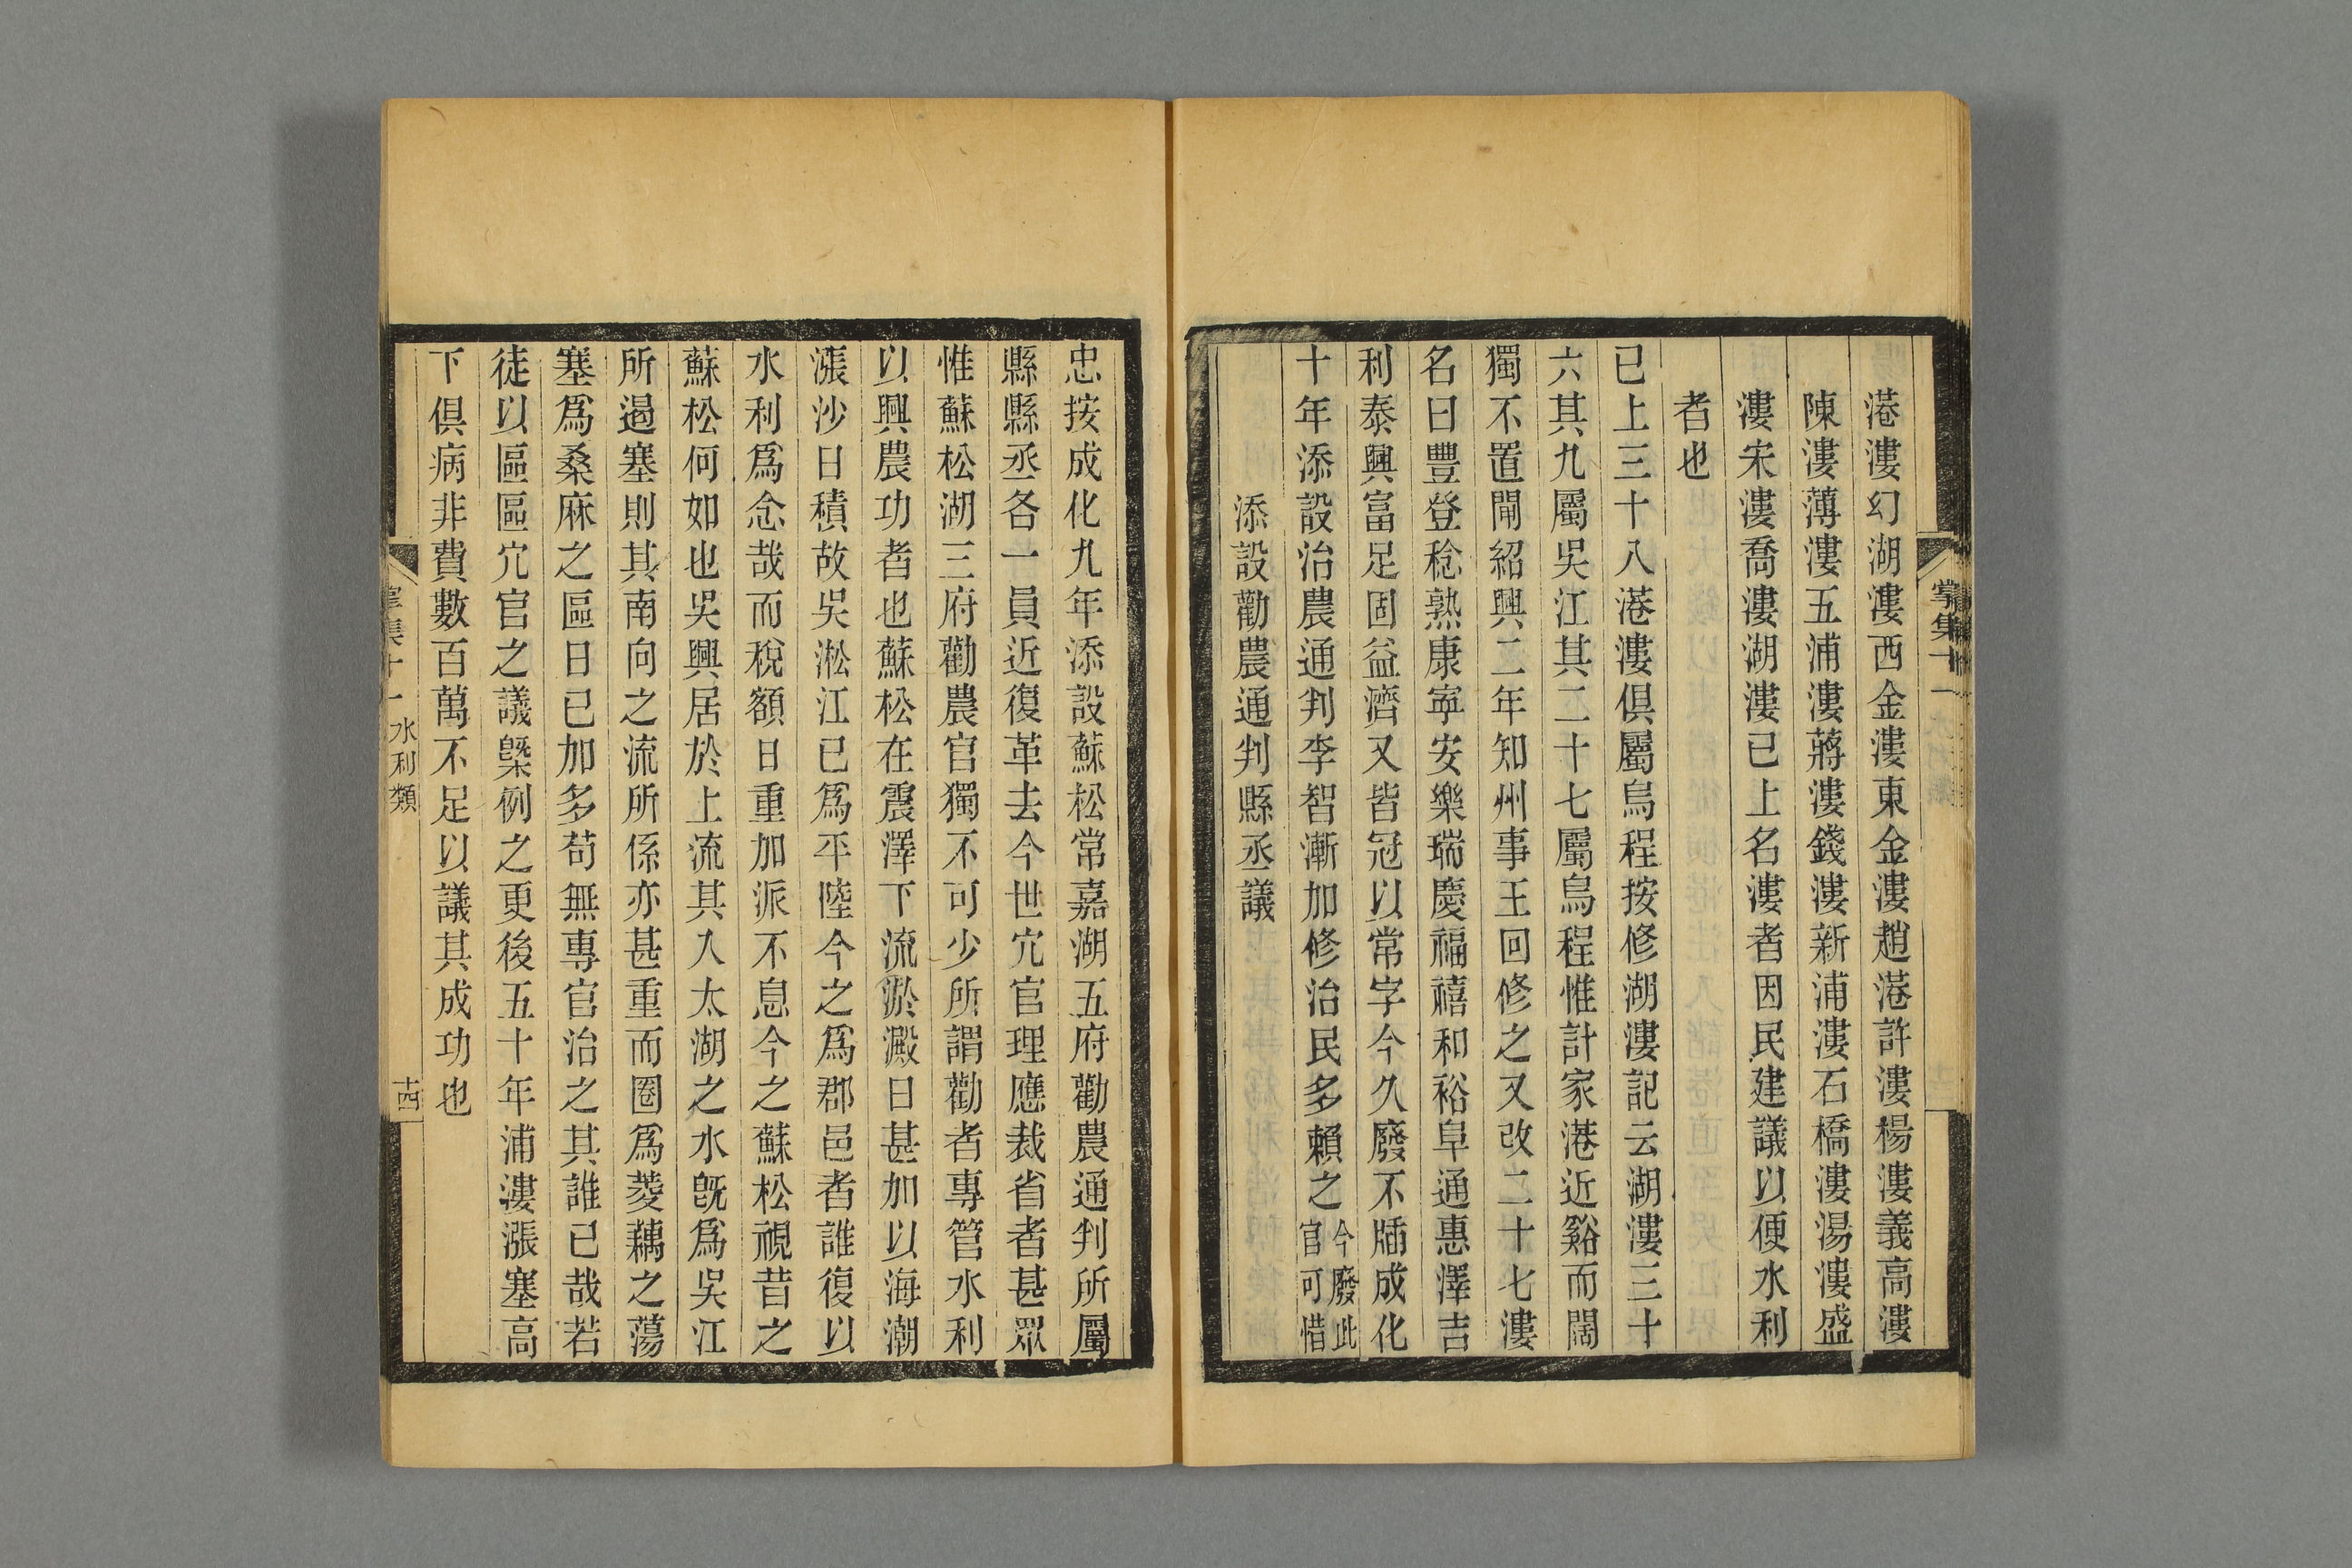 港漊幻湖漊西金漊東金漊趙港許漊楊漊義高漊
陳漊薄漊五浦漊蔣漊錢漊新浦漊石橋漊湯漊盛
漊宋漊喬漊湖漊已上名漊者因民建議以便水利
者也
已上三十八港漊俱屬烏程按修湖漊記云湖漊三十
六其九屬吳江其二十七屬烏程惟計家港近谿而闊
獨不置閘紹興二年知州事王回修之又改二十七漊
名曰豐登稔熟康寧安樂瑞慶福禧和裕阜通惠澤吉
利泰興富足固益濟又皆冠以常字今久廢不牐成化
十年添設治農通判李智漸加修治民多賴之今廢此官可惜
添設勸農通判縣丞議
忠按成化九年添設蘇松常嘉湖五府勸農通判所屬
縣縣丞各一員近復革去今世宂官理應裁省者甚眾
惟蘇松湖三府勸農官獨不可少所謂勸者專管水利
以興農功者也蘇松在震澤下流淤澱日甚加以海潮
漲沙日積故吳淞江已爲平陸今之爲郡邑者誰復以
水利爲念哉而稅額日重加派不息今之蘇松視昔之
蘇松何如也吳興居於上流其入太湖之水旣爲吳江
所遏塞則其南向之流所係亦甚重而圈爲菱藕之蕩
塞爲桑麻之區日已加多苟無專官治之其誰已哉若
徒以區區宂官之議槩例之更後五十年浦漊漲塞高
下俱病非費數百萬不足以議其成功也
掌集十一 水利類 十四
掌集十一